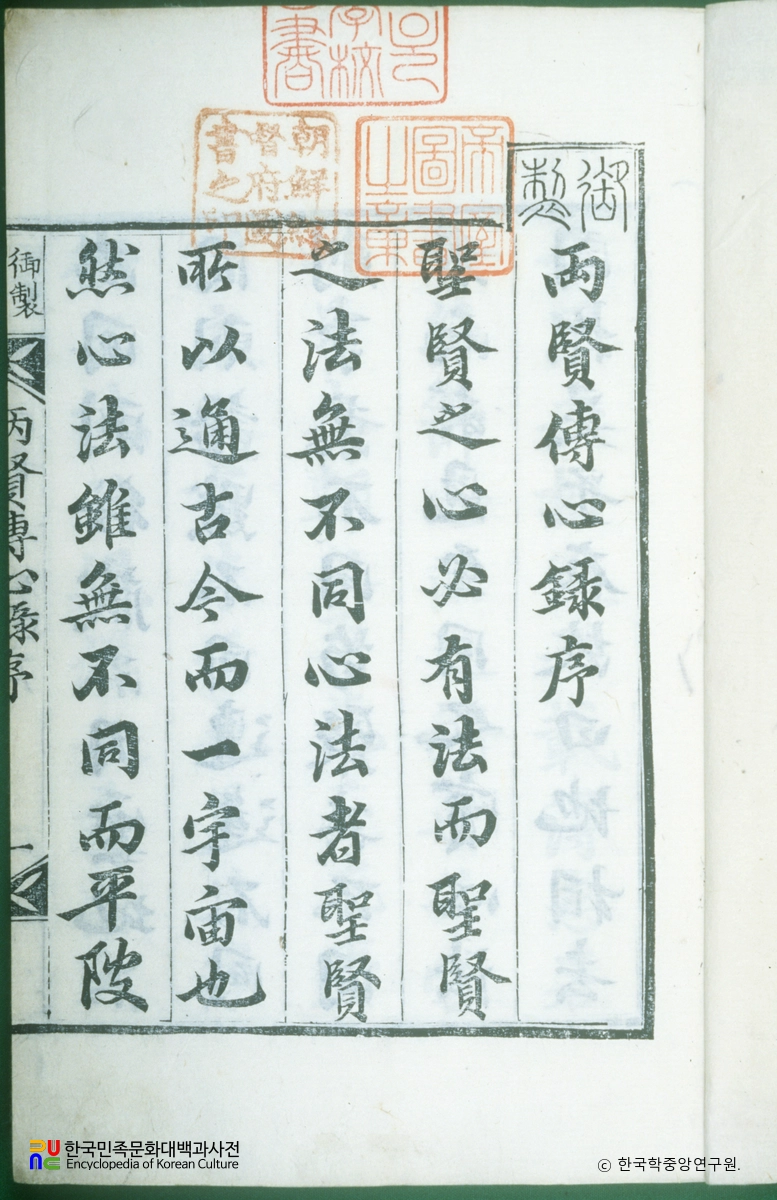 御製
兩賢傳心録序
聖賢之心必有法而聖賢
之法無不同心法者聖賢
所以通古今而一宇宙也
然心法雖無不同而平陂
御製
兩賢傳心録序
一
帝室
圖書
之章
朝鮮總
督府圖
書之印
學校
書
한국민족문화대백과사전
Encyclopedia of Korean Culture
ⓒ 한국학중앙연구원.